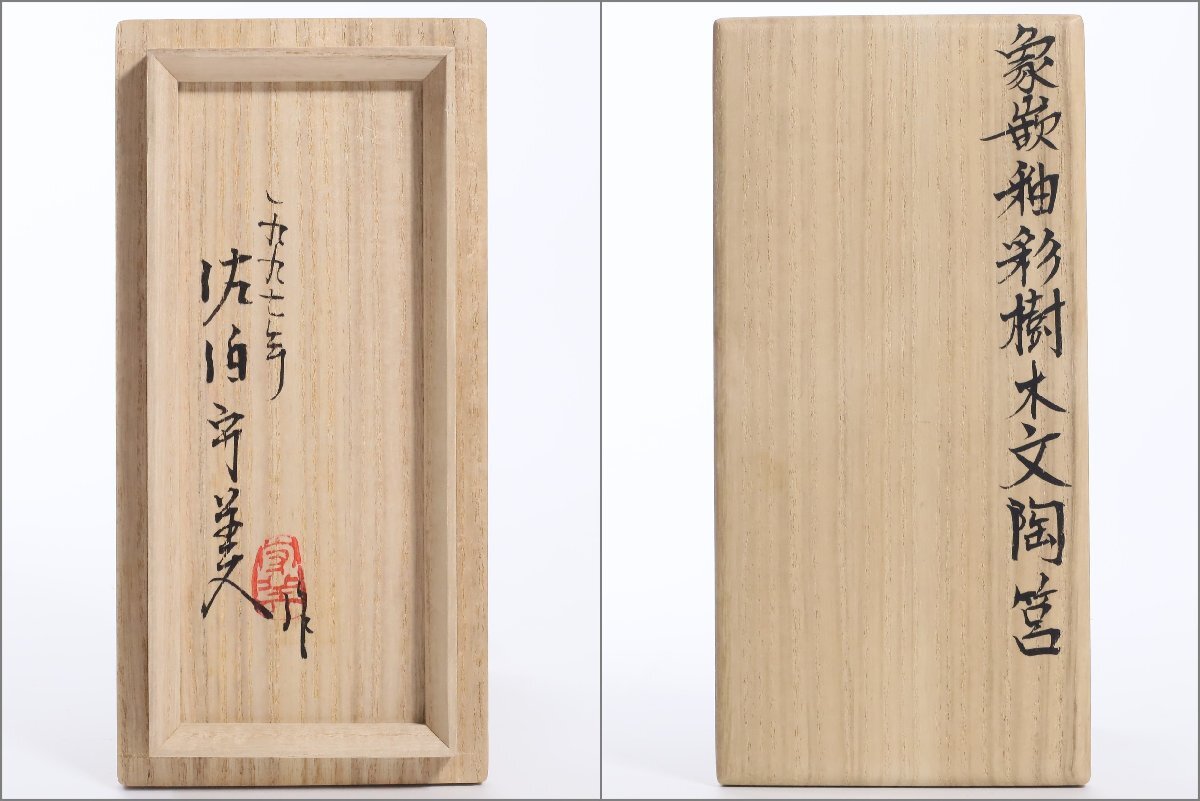 一九九七年
佐伯守美
作
守美
象嵌釉彩樹木文陶筥